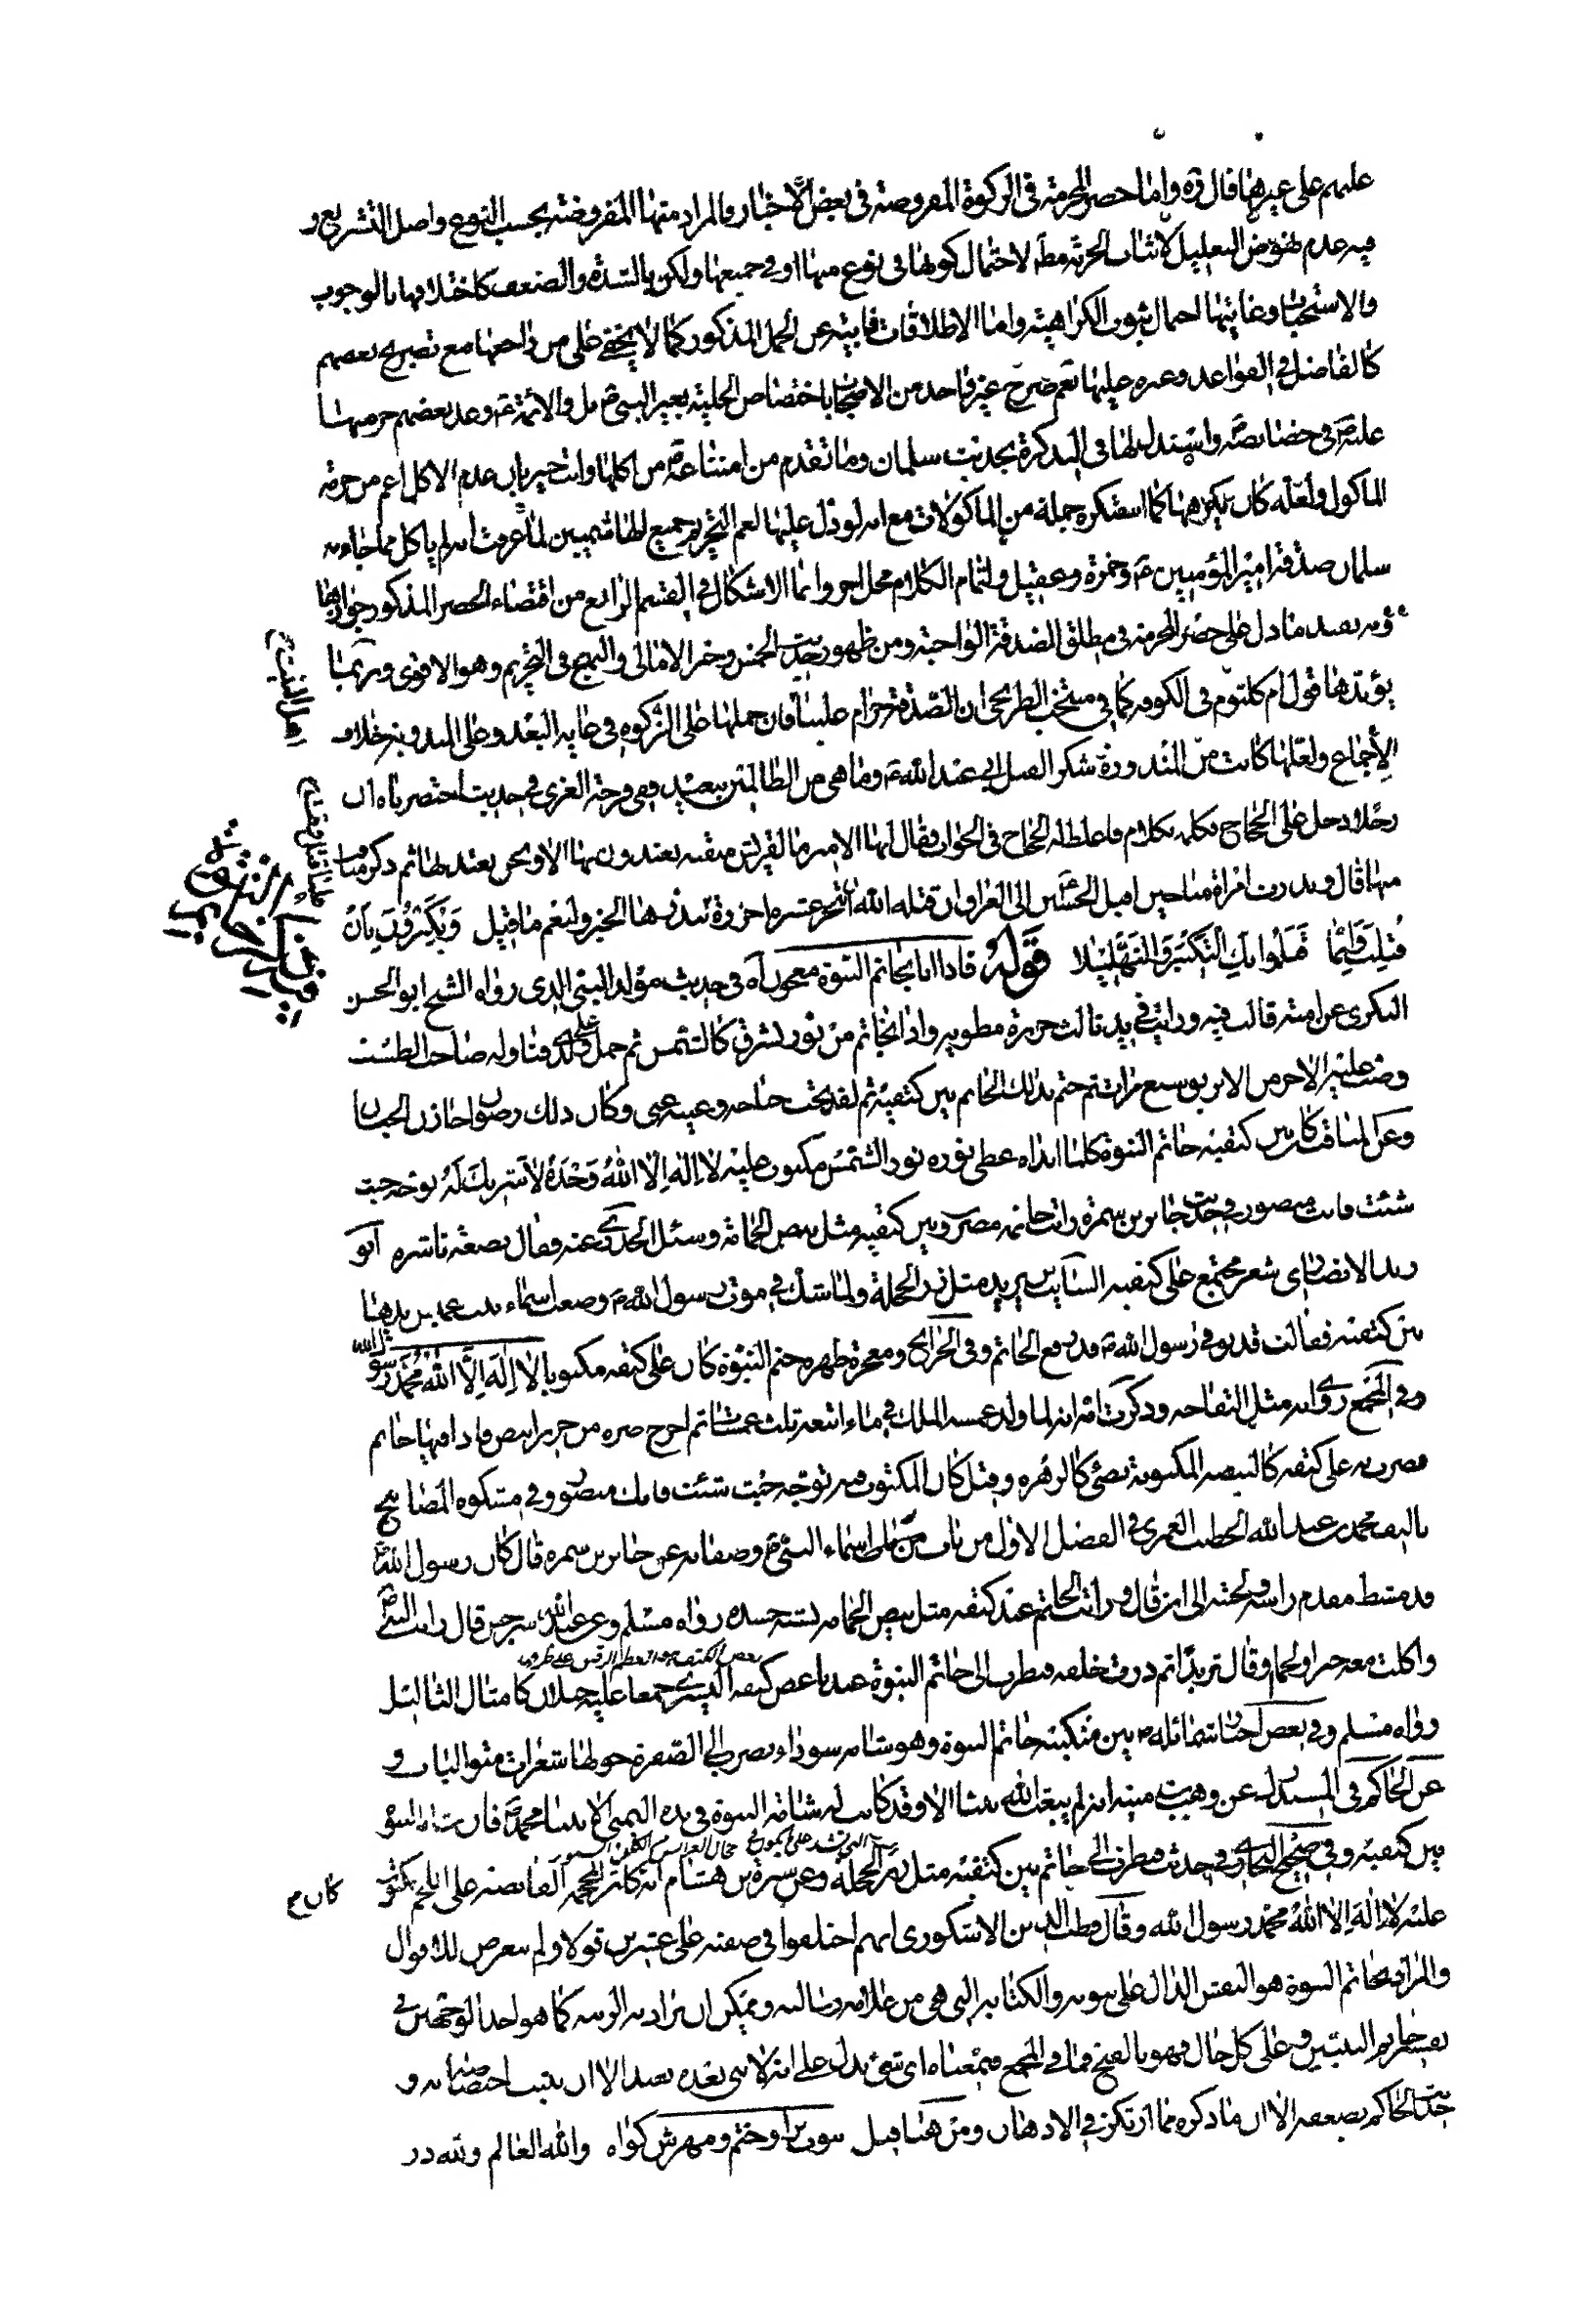 عليهم على غيرها قال قده واما حصر المحرمة في الزكوة المفروضة في بعض الاخبار والمراد منها المفروضة بحسب النوع واصل التشريع و
فيه عدم نهوض التعليل لاثبات الحرمة مط لاحتمال كونها في نوع منها او في جميعها ولكن بالشدة والضعف كاختلافها بالوجوب
والاستحباب وغايتها احتمال ثبوت الكراهية واما الاطلاقات فابية عن الحمل المذكور كما لا يخفى على من راجعها مع تصريح بعضهم
كالفاضل في القواعد وغيره عليها نعم صرح غير واحد من الاصحاب باختصاص الحلية بغير النبي ص بل والائمة ع وعد بعضهم حرمتها
عليه ص في خصائصه واستدل لها في التذكرة بحديث سلمان وما تقدم من امتناعه ص من اكلها وانت خبير بان عدم الاكل اعم من حرمة
الماكول ولعله كان يكرهها كما استكره جملة من الماكولات مع انه لو دل عليها لعم التحريم جميع الهاشميين لما عرفت انه لم ياكل مما جاء به
سلمان صدقة امير المؤمنين ع وحمزة وعقيل ولتمام الكلام محل اخر وانما الاشكال في القسم الرابع من اقتضاء الحصر المذكور جوازها
ومن بعد ما دل على حصر المحرمة في مطلق الصدقة الواجبة ومن ظهور حديث الخمس وخبر الامالي والنهج في التحريم وهو الاقوى وربما
يؤيدها قول ام كلثوم في الكوفه كما في منتخب الطريحي ان الصدقة حرام علينا فان حملها على الزكوة في غاية البعد وعلى المندوبة خلاف
الاجماع ولعلها كانت من المنذورة شكرا لقتل ابي عبد الله ع وما هي من الظالمين ببعيد ففي فرحة الغري في حديث اختصرناه ان
رجلا دخل على الحجاج فكلمه بكلام فاغلظ له الحجاج في الجواب فقال ايها الامير ما لقريش منقبة يعتدون بها الا ونحن نعتد بمثلها ثم ذكر مناقب
منها قال ونذرت امراة منا حين اقبل الحسين الى العراق ان قتله الله ان تنحر عشر جزر فلما قتل وفت بنذرها الخبر ولنعم ما قيل ويكبرون بان
قتلت وانما قتلوا بك التكبير والتهليلا قوله فاذا انا بخاتم النبوة معجون اه في حديث مولد النبي الذي رواه الشيخ ابو الحسن
البكري عن امنة قالت فيه ورايت في يد ثالث حريرة مطوية واذا بخاتم من نور يشرق كالشمس ثم حمل ولدي فناوله صاحب الطشت
وصب عليه الاخر من الابريق سبع مرات ثم ختم بذلك الخاتم بين كتفيه ثم لفه تحت جناحه وغيبه عني وكان ذلك رضوان خازن الجنان
وعن المناقب كان بين كتفيه خاتم النبوة كلما ابداه غطى نوره نور الشمس مكتوب عليه لا اله الا الله وحده لا شريك له توجه حيث
شئت فانت منصور وفي حديث جابر بن سمرة رايت خاتمه بين كتفيه مثل بيض الحمامة وسئل الخدري عنه فقال بضعة ناشزه ابو
زيد الانصاري شعر مجتمع على كتفيه السائب بن يزيد مثل زر الحجلة ولما شك في موت رسول الله ص وضعت اسماء بنت عميس يدها
بين كتفيه فقالت قد توفي رسول الله ص قد رفع الخاتم وفي الخرايج ومعجزة ظهره ختم النبوة كان على كتفه مكتوبا لا اله الا الله محمد رسول الله
وفي المجمع روي انه مثل التفاحة وذكرت امه انه لما ولد غمسه الملك في ماء اتبعه ثلث غمسات ثم اخرج صره من حرير ابيض فاذا فيها خاتم
فضرب به على كتفه كالبيضة المكنونة تضيء كالزهره وقيل كان المكتوب فيه توجه حيث شئت فانك منصور وفي مشكوة المصابيح
تاليف محمد بن عبد الله الخطيب العمري في الفصل الاول من باب اسماء النبي ص وصفاته عن جابر بن سمره قال كان رسول الله ص
قد مشط مقدم راسه ولحيته الى ان قال ورايت الخاتم عند كتفه مثل بيض الحمامة يشبه جسده رواه مسلم وعن عبد الله بن سرجس قال رايت النبي ص
واكلت معه خبزا ولحما وقال ثريدا ثم درت خلفه فنظرت الى خاتم النبوة عند ناغض كتفه اليسرى جمعا عليه خيلان كامثال الثاليل
رواه مسلم وفي بعض اخبار شمائله ص بين منكبيه خاتم النبوة وهو شامة سوداء تضرب الى الصفرة حولها شعرات متواليات و
عن الحاكم في المستدرك عن وهب بن منبه انه لم يبعث الله نبيا الا وقد كانت له شامة النبوة في يده اليمنى الا نبينا محمد ص فان شامة النبوة
بين كتفيه وفي صحيح البخاري في حديث فنظرت الى خاتم بين كتفيه مثل زر الحجلة وعن سيرة بن هشام انه كاثر المحجمة القابضة على اللحم مكتوب
كان م
عليه لا اله الا الله محمد رسول الله وقال قطب الدين الاشكوري انهم اختلفوا في صفته على عشرين قولا ولم يتعرض للاقوال
والمراد بخاتم النبوة هو النقش الدال على نبوته والكتابة التي هي من علامة رسالته ويمكن ان يراد به الزينة كما هو احد الوجهين في
تفسير خاتم النبيين وعلى كل حال فهو بالفتح فما في المجمع فمعناه اي شيء يدل على انه لا نبي بعده بعيد الا ان يثبت اختصاصه به و
حديث الحاكم يضعفه الا ان ما ذكره مما ارتكز في الاذهان ومن هنا قيل وختم ومهرش كواه والله العالم ولله در